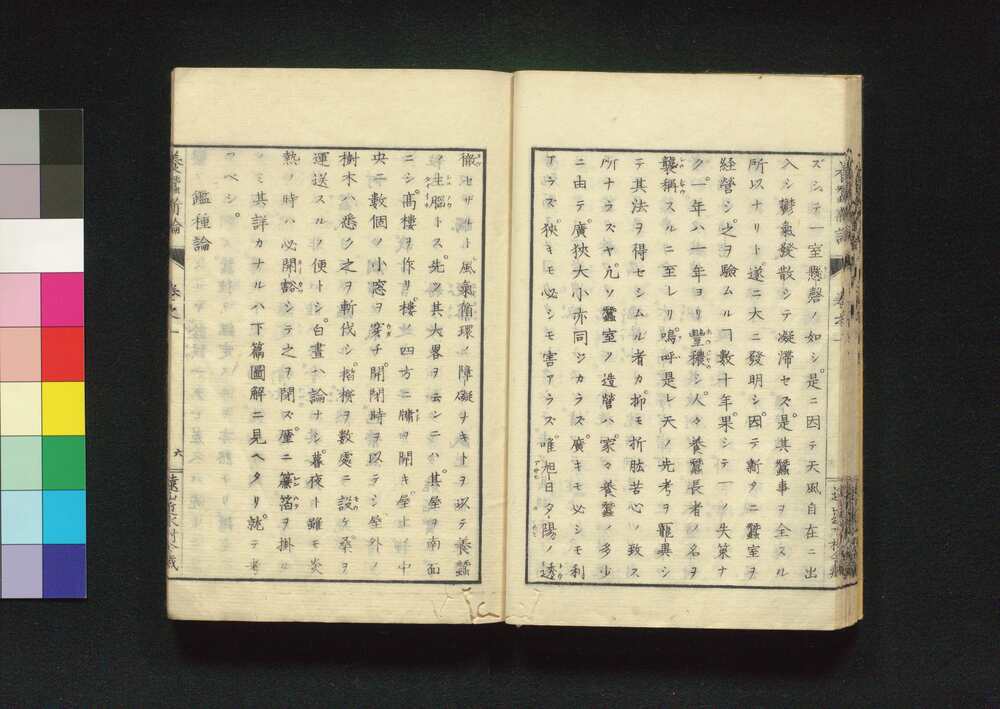 ズシテ一室懸磬ノ如シ是ニ因テ天風自在ニ出
入シ鬱氣發散シテ凝滞セズ是其蠶事ヲ全スル
所以ナリト遂ニ大ニ發明シ因テ斬タニ蠶室ヲ
經營シ之ヲ驗ムル𪜈數十年果シテ一ノ失策ナ
ク一年ハ一年ヨリ豐穰シ人々養蠶長者ノ名ヲ
襲稱スルニ至レリ嗚呼是レ天ノ先考ヲ寵異シ
テ其法ヲ得セシムル者カ抑モ折肱苦心ノ致ス
所ナラズヤ凡ソ蠶室ノ造營ハ家々養蠶ノ多少
ニ由テ廣狹大小亦同ジカラズ廣キモ必シモ利
アラズ狹キモ必シモ害アラズ唯旭日夕陽ノ透
徹セザルト風氣循環ノ障礙ナキトヲ以テ養蠶
ノ主腦トス先ツ其大畧ヲ云ンニハ其屋ヲ南面
ニシ高樓ヲ作リ樓ノ四方ニ牖ヲ開キ屋上ノ中
央ニ數個ノ小窓ヲ穿チ開閉時ヲ以テシ屋外ノ
樹木ハ悉ク之ヲ斬伐シ 數處ニ設ケ桑ヲ
運送スルノ便トシ白晝ハ論ナシ暮夜ト雖モ炎
熱ノ時ハ必開豁シテ之ヲ閉ズ 簾箔ヲ掛ル
ノミ其詳カナルハ下篇圖解ニ見ヘタリ就テ考
フベシ
鑑種論
養蠶新論
卷之一
六